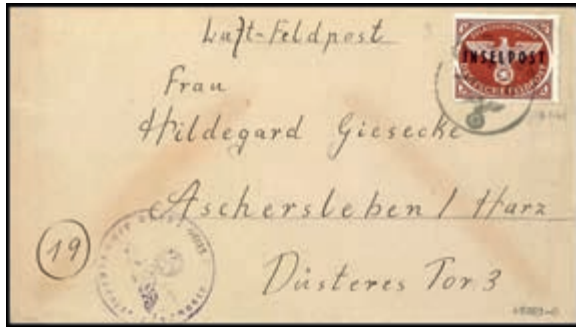 Luft-Feldpost
INSELPOST
DEUTSCHE FELDPOST
Frau
Hildegard Giesecke
Aschersleben / Harz
19
Düsteres Tor 3